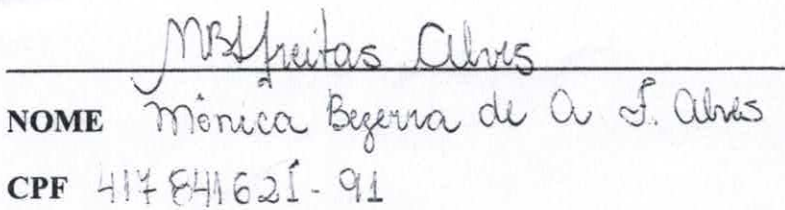 MBAfreitas Alves
NOME Mônica Bezerra de A F. Alves
CPF 417841621-91